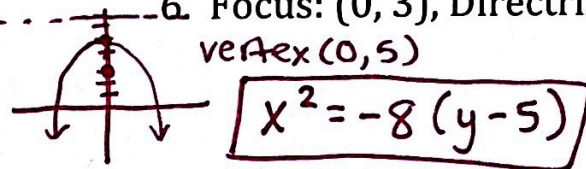 6. Focus: (0, 3), Directri
vertex (0,5)
x² = -8 (y-5)